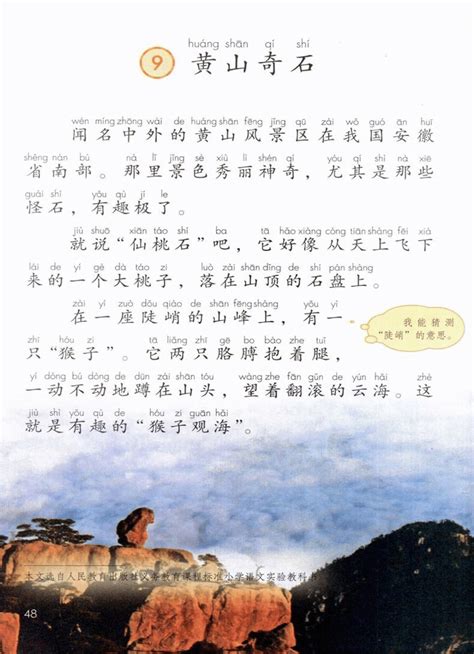 huáng shān qí shí
9 黄山奇石
wén míng zhōng wài de huáng shān fēng jǐng qū zài wǒ guó ān huī
闻名中外的黄山风景区在我国安徽
shěng nán bù nà lǐ jǐng sè xiù lì shén qí yóu qí shì nà xiē
省南部。那里景色秀丽神奇，尤其是那些
guài shí yǒu qù jí le
怪石，有趣极了。
jiù shuō xiān táo shí ba tā hǎo xiàng cóng tiān shàng fēi xià
就说“仙桃石”吧，它好像从天上飞下
lái de yí gè dà táo zi luò zài shān dǐng de shí pán shàng
来的一个大桃子，落在山顶的石盘上。
zài yí zuò dǒu qiào de shān fēng shàng yǒu yì
在一座陡峭的山峰上，有一
我能猜测
“陡峭”的意思。
zhī hóu zi tā liǎng zhī gē bo bào zhe tuǐ
只“猴子”。它两只胳膊抱着腿，
yí dòng bú dòng de dūn zài shān tóu wàng zhe fān gǔn de yún hǎi zhè
一动不动地蹲在山头，望着翻滚的云海。这
jiù shì yǒu qù de hóu zi guān hǎi
就是有趣的“猴子观海”。
本文选自人民教育出版社义务教育课程标准小学语文实验教科书
48